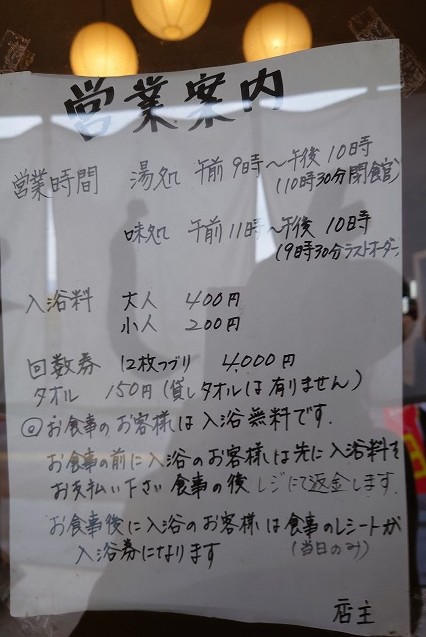 営業案内
営業時間 湯処 午前9時～午後10時
(10時30分閉館)
味処 午前11時～午後10時
(9時30分ラストオーダー)
入浴料 大人 400円
小人 200円
回数券 12枚つづり 4,000円
タオル 150円(貸しタオルは有りません)
◎お食事のお客様は入浴無料です.
お食事の前に入浴のお客様は先に入浴料を
お支払い下さい食事の後レジにて返金します.
お食事後に入浴のお客様は食事のレシートが
入浴券になります (当日のみ)
店主